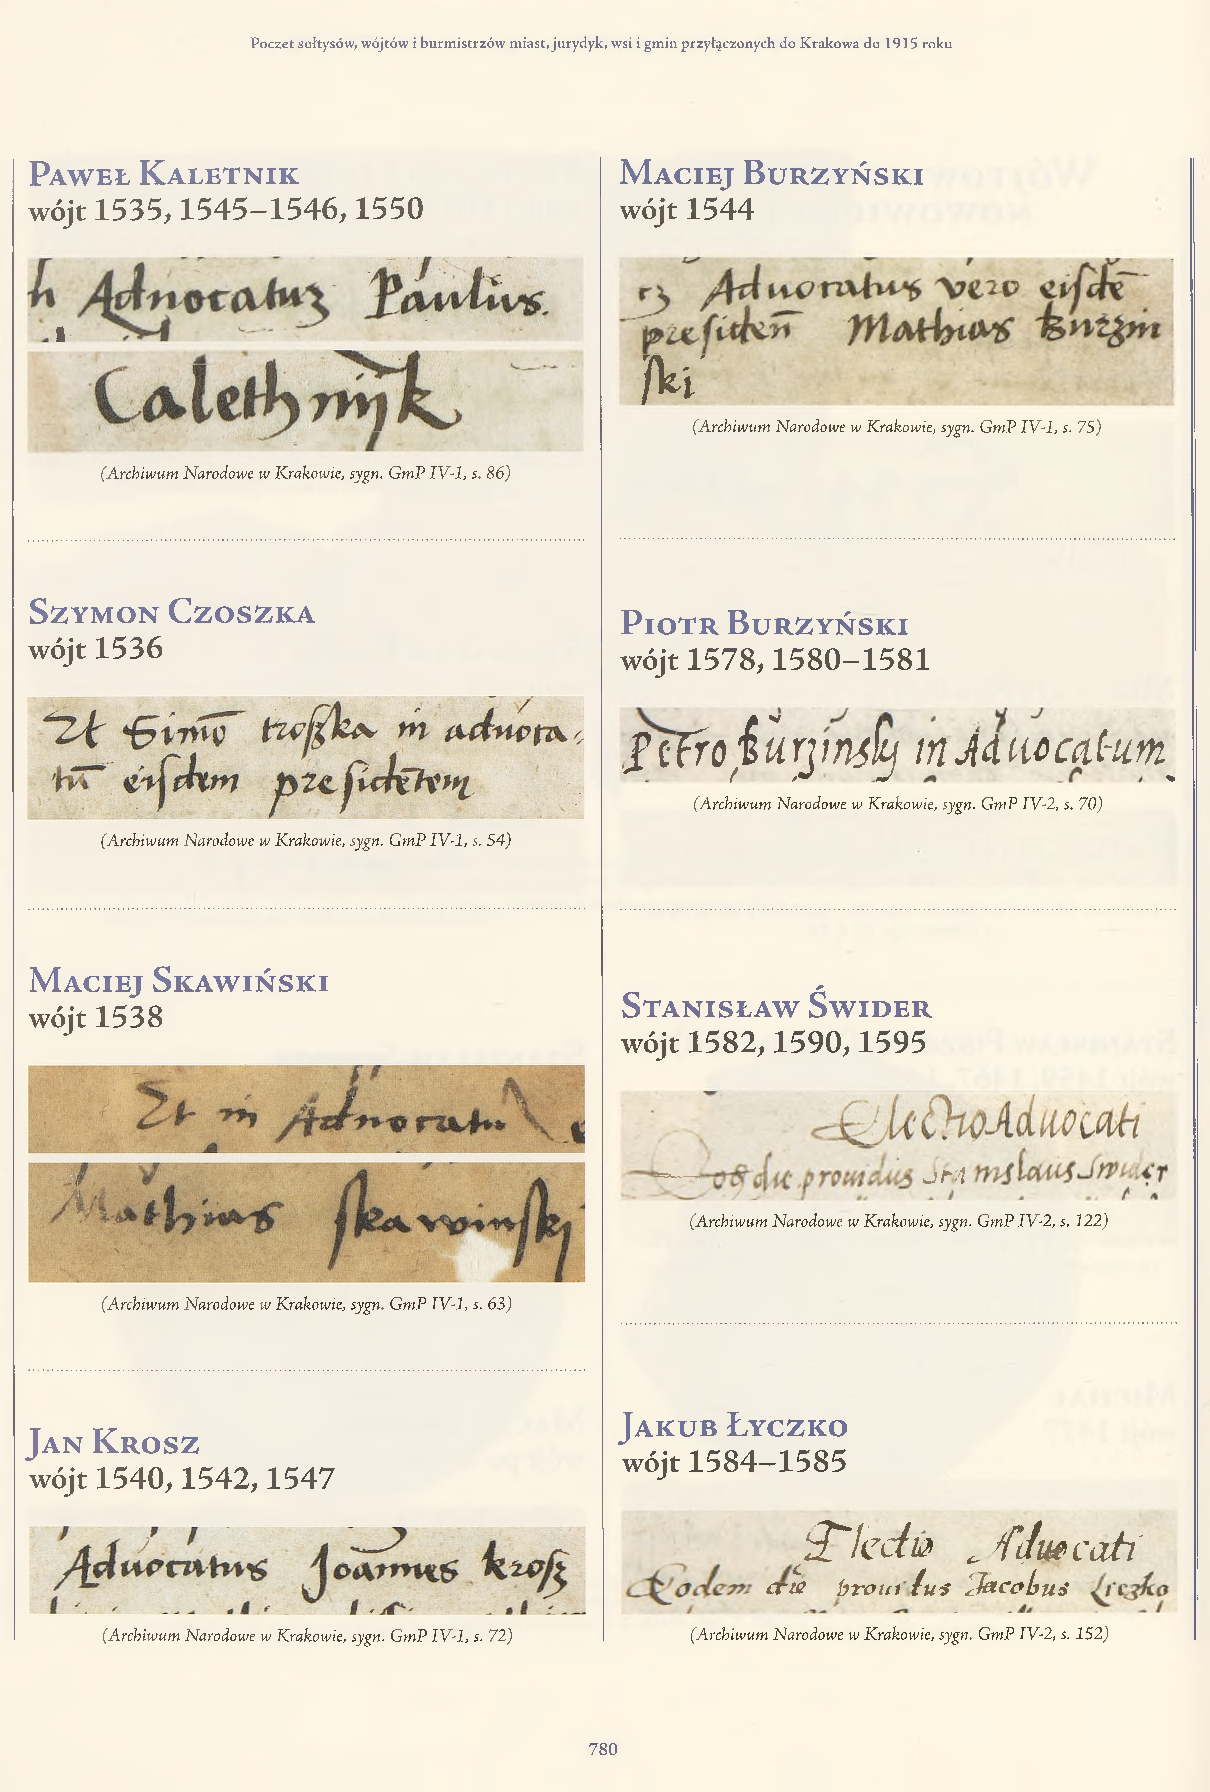 Poczet sołtysów, wójtów i burmistrzów miast, jurydyk, wsi i gmin przyłączonych do Krakowa do 1915 roku
Paweł Kaletnik
wójt 1535, 1545–1546, 1550
h Aduocatus Paulus
Calethnijk
(Archiwum Narodowe w Krakowie, sygn. GmP IV-1, s. 86)
Szymon Czoszka
wójt 1536
Et Simō in aduoca
tū eisdem presidētem
(Archiwum Narodowe w Krakowie, sygn. GmP IV-1, s. 54)
Maciej Skawiński
wójt 1538
Et in Aduocatu
Mathias skawinski
(Archiwum Narodowe w Krakowie, sygn. GmP IV-1, s. 63)
Jan Krosz
wójt 1540, 1542, 1547
Aduocatus Joannes krosz
(Archiwum Narodowe w Krakowie, sygn. GmP IV-1, s. 72)
Maciej Burzyński
wójt 1544
Aduocatus vero eisdē
presiden̄ Mathias Burzin
ski
(Archiwum Narodowe w Krakowie, sygn. GmP IV-1, s. 75)
Piotr Burzyński
wójt 1578, 1580–1581
Petro Burzinsky in Aduocatum
(Archiwum Narodowe w Krakowie, sygn. GmP IV-2, s. 70)
Stanisław Świder
wójt 1582, 1590, 1595
Electio Aduocati
die prouidus Stanislaus Swider
(Archiwum Narodowe w Krakowie, sygn. GmP IV-2, s. 122)
Jakub Łyczko
wójt 1584–1585
Electio Aduocati
Eodem die prouidus Jacobus Liczko
(Archiwum Narodowe w Krakowie, sygn. GmP IV-2, s. 152)
780